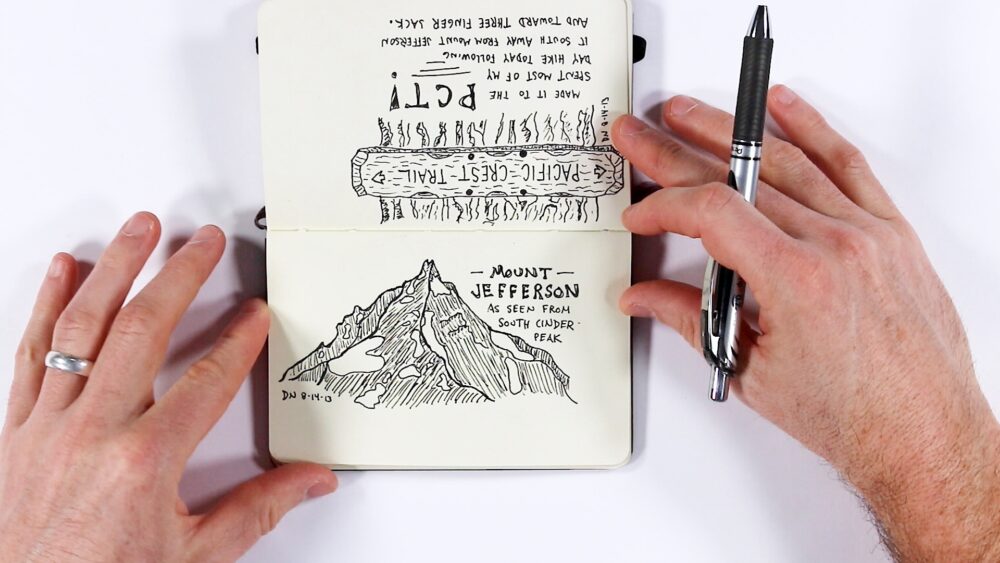 PACIFIC CREST TRAIL
DN 8-14-13
MADE IT TO THE PCT!
SPENT MOST OF MY
DAY HIKE TODAY FOLLOWING
IT SOUTH AWAY FROM MOUNT JEFFERSON
AND TOWARD THREE FINGER JACK.
— MOUNT —
JEFFERSON
AS SEEN FROM
SOUTH CINDER
PEAK
DN 8-14-13